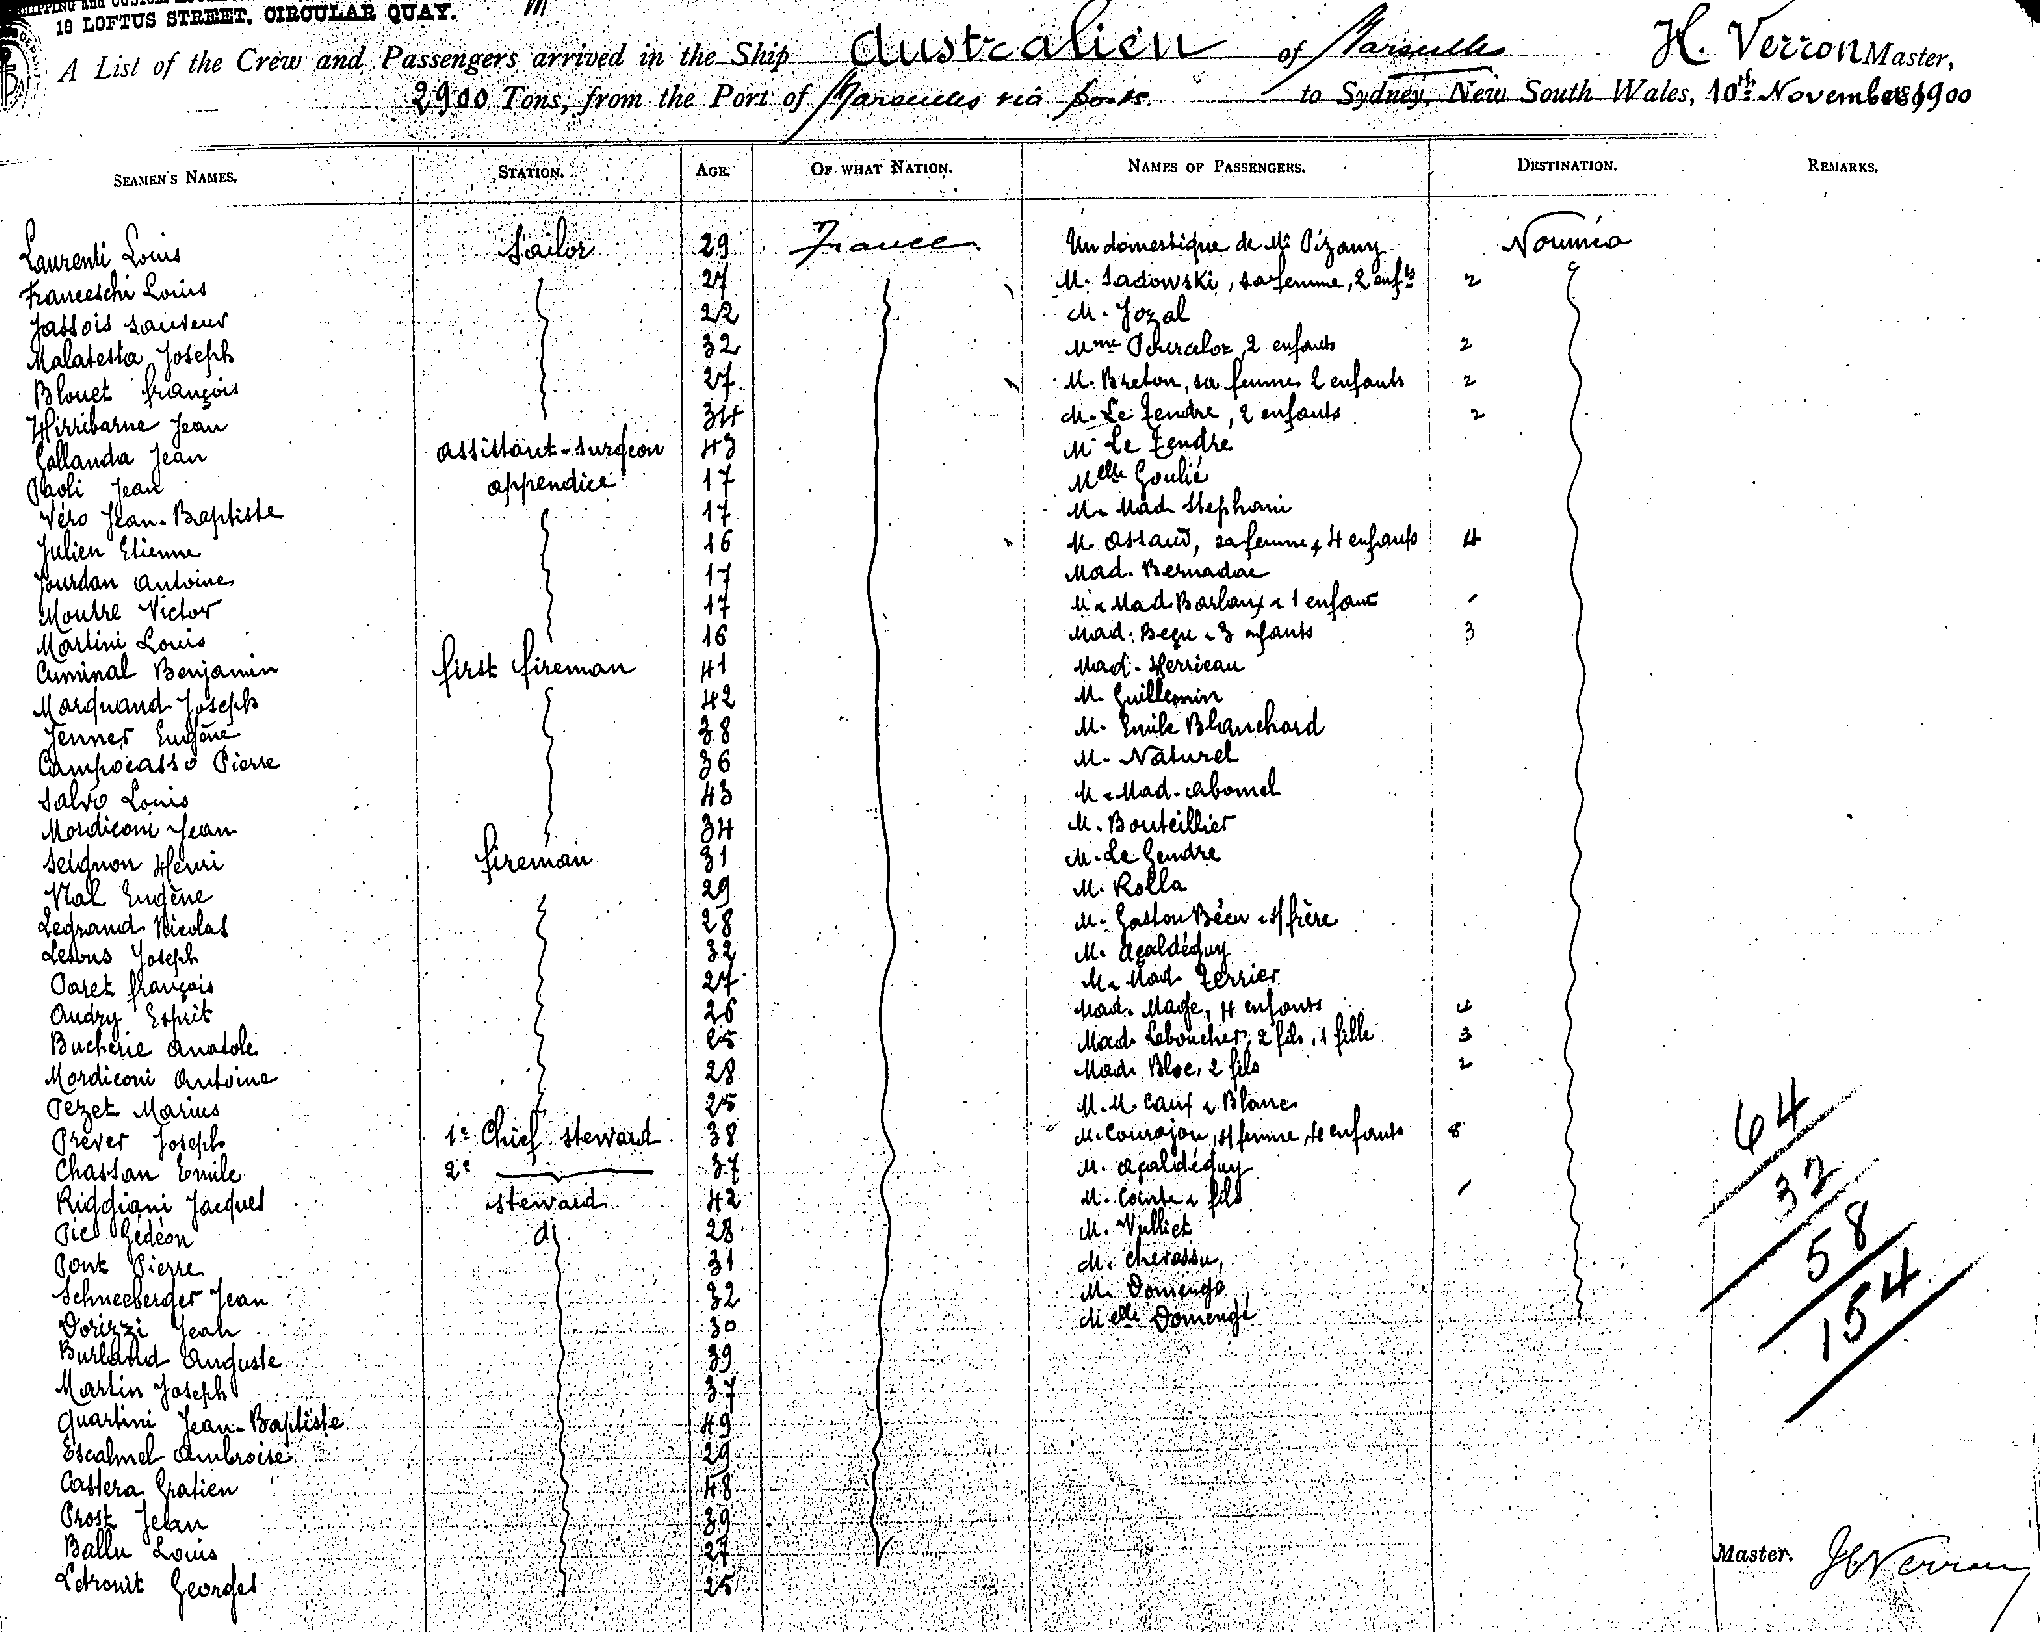 18 LOFTUS STREET, CIRCULAR QUAY.
A List of the Crew and Passengers arrived in the Ship Australien of Marseille H. Verron Master,
2900 Tons, from the Port of Marseilles via ports to Sydney, New South Wales, 10th November 1900
SEAMEN'S NAMES. STATION. AGE OF WHAT NATION. NAMES OF PASSENGERS. DESTINATION. REMARKS.
Laurenti Louis Sailor 29 France Un domestique de Mr Pizany Nouméa
Franceschi Louis 27 M. Sadowski, sa femme, 2 enfts 2
Jassois Sauveur 22 M. Jozal
Malatesta Joseph 32 Mme 2 enfants 2
Blouet François 27 M. Breton, sa femme 2 enfants 2
Hirribarne Jean 34 M. Le Tendre, 2 enfants 2
Gallanda Jean assistant-surgeon 43 M Le Tendre
Paoli Jean appendice 17 Melle Goulié
Véro Jean-Baptiste 17 M. Mad Stephani
Julien Etienne 16 M. Assaud, sa femme, 4 enfants 4
Jourdan Antoine 17 Mad. Bernadac
Moutre Victor 17 M & Mad Barlaux & 1 enfant 1
Martini Louis 16 Mad. Bequ & 3 enfants 3
Cuminal Benjamin first fireman 41 Mad. Herrieau
Marquand Joseph 42 M. Guillemin
Jenner Eugène 38 M. Emile Blanchard
Campocasso Pierre 36 M. Naturel
Salvo Louis 43 M & Mad. Abomel
Mordiconi Jean 34 M. Bouteillier
Seignon Henri fireman 31 M. Le Gendre
Nal Eugène 29 M. Rolla
Legrand Nicolas 28 M. Gaston Bécu & s/ frère
Lesous Joseph 32 M. Açaldéguy
Paret François 27 M & Mad Terrier
Audry Esprit 26 Mad. Mage, 4 enfants 4
Bucherie Anatole 25 Mad. Leboucher, 2 fils, 1 fille 3
Mordiconi Antoine 28 Mad. Bloc, 2 fils 2
Pezet Marius 25 M.M. Caux & Blanc
Prever Joseph 1r Chief steward 38 M. Courajou, s/ femme, enfants 8
Chassan Emile 2e 37 M. Açaldéguy
Riggiani Jacques steward 42 M. Cointe & fils 1
Pico Gédéon d 28 M. Vulliet
Pont Pierre 31 M. Chevassu,
Schneeberger Jean 32 M. Domengo
Dorizzi Jean 30 Melle Domengé
Burland Auguste 39
Martin Joseph 37
Quartini Jean-Baptiste 49
Escalmel Ambroise 29
Castera Gratien 48
Prost Jean 39
Ballu Louis 27
Letrouit Georges 25
64
32
58
154
Master. H Verron